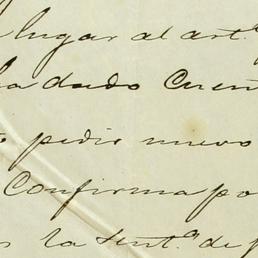 lugar al art.º
ha dado Cuen
pedir nuevo
Confirma po
la Sent.ª de p